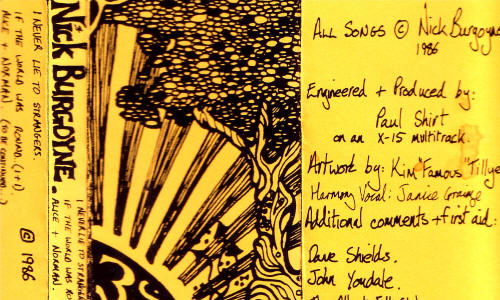 I NEVER LIE TO STRANGERS.
IF THE WORLD WAS ROUND. (1+1)
ALICE + NORMAN. (TO BE CONTINUED...)
© 1986
NICK BURGOYNE.
I NEVER LIE TO STRANGERS.
IF THE WORLD WAS
ALICE + NORMAN.
ALL SONGS © Nick Burgoyne
1986
Engineered + Produced by:
Paul Shirt
on an X-15 multitrack.
Artwork by: Kim Famous "Tillye
Harmony Vocal: Janice Grainge
Additional comments + first aid:
Dave Shields.
John Youdale.